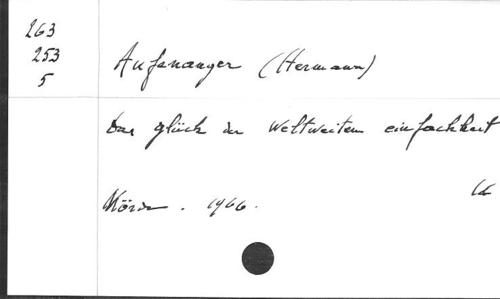 263
253
5
Aufenanger (Hermann)
Das glück der Weltweiten einfachheit
1966.